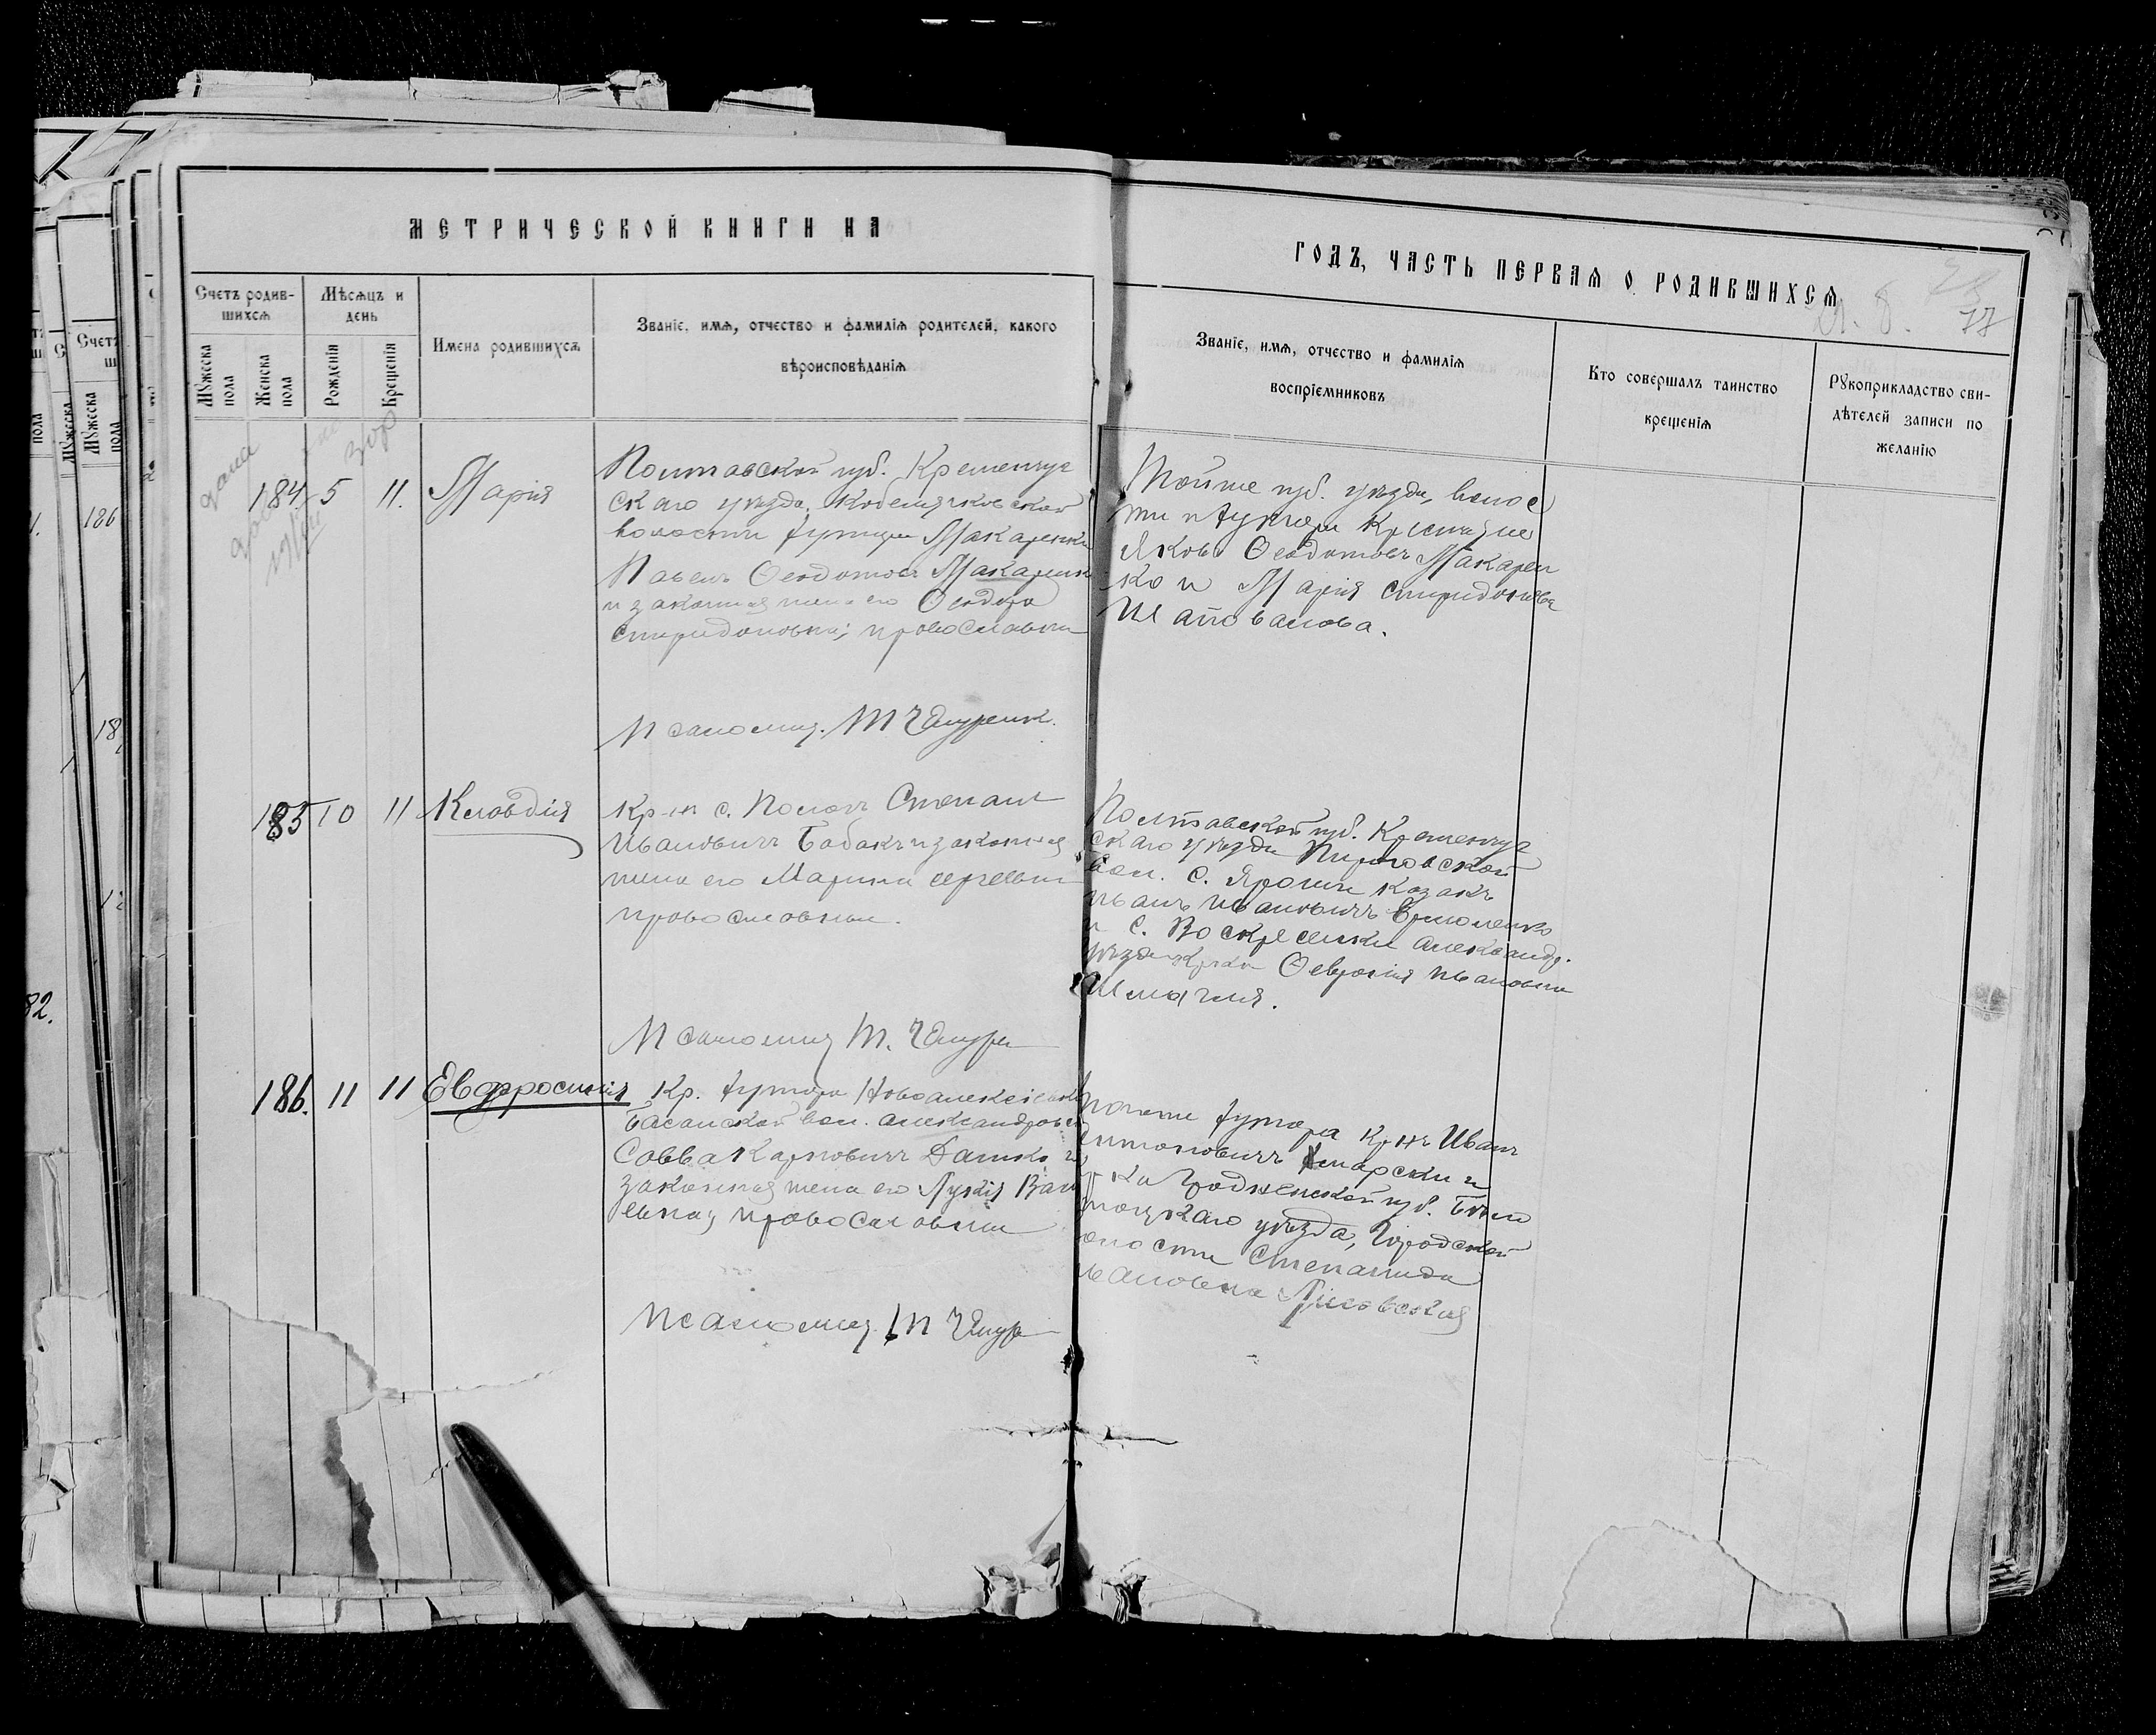 МЕТРИЧЕСКОЙ КНИГИ НА
ГОДЪ, ЧАСТЬ ПЕРВАЯ О РОДИВШИХСЯ
77
Счетъ родив-
шихся
Мѣсяцъ и
день
Мужеска
пола
Женска
пола
Рожденія
Крещенія
Имена родившихся
Званіе, имя, отчество и фамилія родителей, какого
вѣроисповѣданія
Званіе, имя, отчество и фамилія
воспріемниковъ
Кто совершалъ таинство
крещенія
Рукоприкладство сви-
дѣтелей записи по
желанію
184 5 11. Марія
Полтавской губ. Кременчуг
скаго уѣзда, Кобелячковской
волости хутора Макаренки
Павелъ Ѳеодотовъ Макаренк
и законная жена его Ѳеодора
Спиридоновна; православн
Псаломщ. М
Той же губ. уѣзда, волос
ти и хутора Крестьяне
Яковъ Ѳеодотовъ Макарен
ко и Марія Спиридонова
Шаповалова.
185 10 11 Клавдія
Кр-нъ с. Пологъ Степанъ
Ивановичъ Бабакъ и законная
жена его Марина Сергѣевна
православные.
Псаломщ М.
Полтавской губ. Кременчуг
скаго уѣзда Пироговской
вол. с. Яроши козакъ
Иванъ Ивановичъ Ермоленко
и с. Воскресенки Александр.
уѣзда кр-ка Ѳевронія Ивановна
186. 11 11 Евфросинія
Кр. хутора Новоалексѣевк
Басанской вол. Александровск
Савва Карповичъ Дашко и
законная жена его Лукія Васи
евна; православные
Псаломщ.
хутора кр-нъ Иванъ
и
Гродненской губ. Бѣло
стоцкаго уѣзда, Городской
олости Степанида
вановна